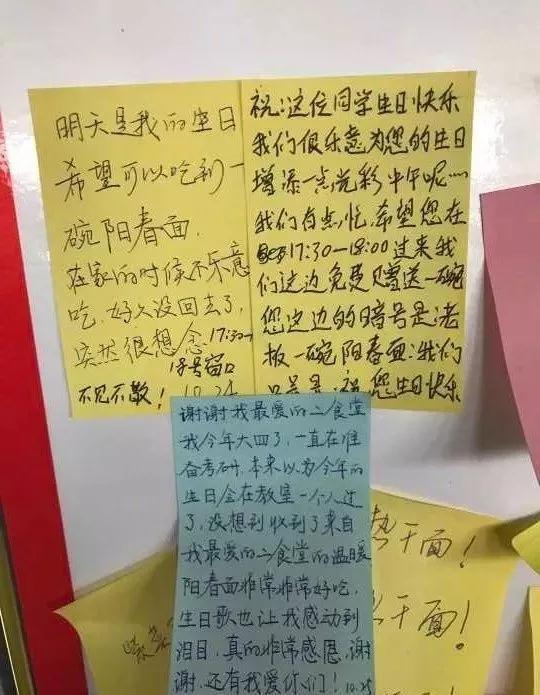 明天是我的生日
希望可以吃到一
碗阳春面.
在家的时候不乐意
吃,好久没回去了,
突然很想念
17:30—
1号窗口
不见不散!
10.24
祝:这位同学生日快乐
我们很乐意为您的生日
增添一点光彩中午呢……
我们有点忙,希望您在
17:30—18:00过来我
们这边免费赠送一碗
您这边的暗号是:老
板一碗阳春面:我们
祝您生日快乐
谢谢我最爱的二食堂
我今年大四了,一直在准
备考研,本来以为今年的
生日会在教室一个人过
了,没想到收到了来自
我最爱的二食堂的温暖
阳春面非常非常好吃,
生日歌也让我感动到
泪目,真的非常感恩,谢
谢,还有我爱你们!10.25
热干面!
热干面!